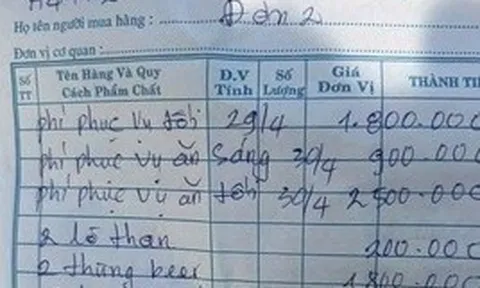 Họ tên người mua hàng : Đơn 2
Đơn vị cơ quan :
Số TT Tên Hàng Và Quy Cách Phẩm Chất Đ.V Tính Số Lượng Giá Đơn Vị THÀNH TI
phí phục vụ tối 29/4 1.800.000
phí phục vụ ăn sáng 30/4 900.000
phí phục vụ ăn tối 30/4 2500.000
2 lò than 200.000
2 thùng beer 1800.000